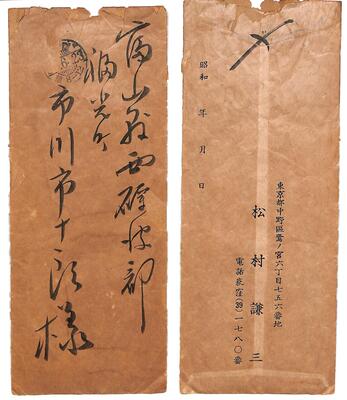 富山県西礪波郡
福光町
市川市十郎様
〆
東京都中野區鷺ノ宮六丁目七五六番地
松村謙三
電話荻窪(39)一七八〇番
昭和　年　月　日